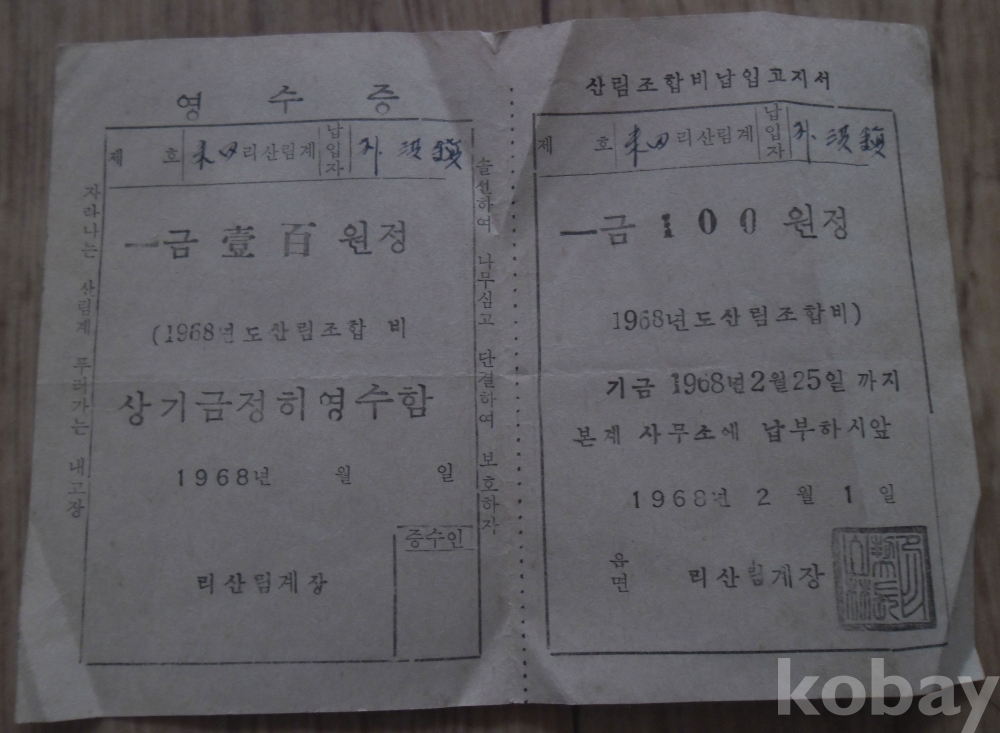 영수증
제 호 未田 리산림계 납입자 孫 鎭
一금 壹百 원정
(1968년도산림조합 비
상기금정히영수함
1968년 월 일
증수인
리산림계장
자라나는 산림계 푸러가는 내고장
솔선하여 나무심고 단결하여 보호하자
산림조합비납입고지서
제 호 未田 리산림계 납입자 孫 鎭
一금 100 원정
1968년도산림조합비)
기금 1968년2월25일 까지
본계 사무소에 납부하시앞
1968년 2월 1일
읍면 리산림계장
kobay